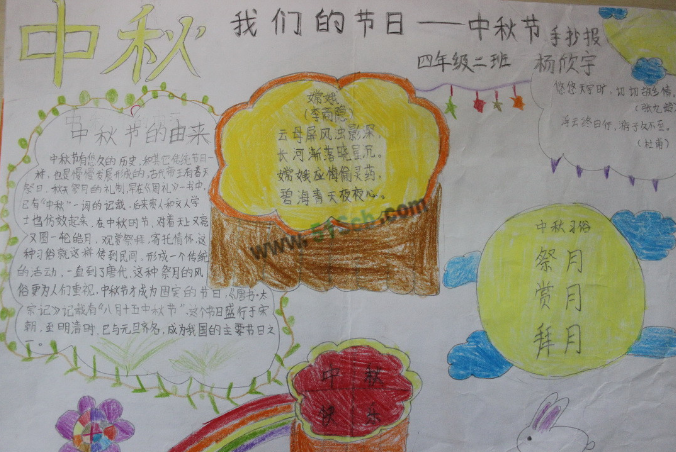 中秋
我们的节日——中秋节手抄报
四年级二班 杨欣宇
嫦娥
(李商隐)
云母屏风烛影深,
长河渐落晓星沉。
嫦娥应悔偷灵药,
碧海青天夜夜心。
中秋节的由来
中秋节有悠久的历史,和其它传统节日一
样,也是慢慢发展形成的,古代帝王有春天
祭日,秋天祭月的礼制,早在《周礼》一书中,
已有"中秋"一词的记载。后来贵人和文人学
士也仿效起来,在中秋时节,对着天上又亮
又圆一轮皓月,观赏祭拜,寄托情怀,这
种习俗就这样传到民间,形成一个传统
的活动,一直到了唐代,这种祭月的风
俗更为人们重视,中秋节才成为固定的节日,《唐书·太
宗记》记载有"八月十五中秋节",这个节日盛行于宋
朝,至明清时,已与元旦齐名,成为我国的主要节日之
一。
(张九龄)
(杜甫)
中秋习俗
祭月
赏月
拜月
中秋
www.51Sch.com